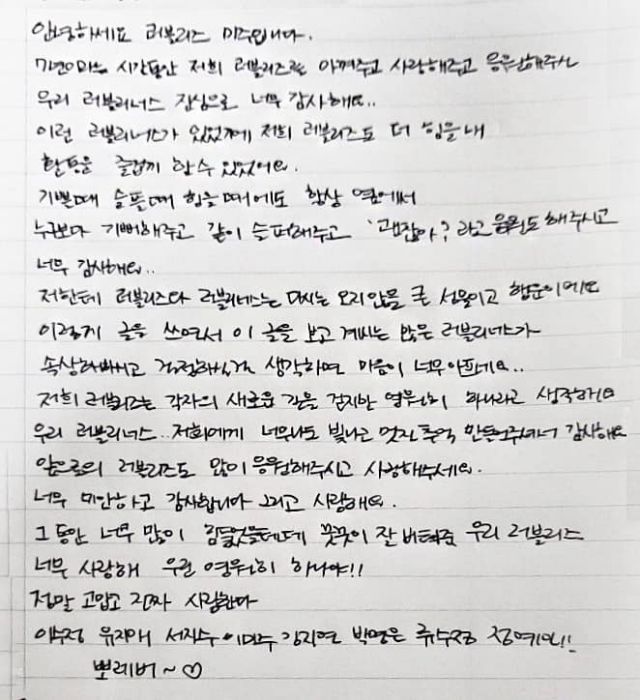 안녕하세요 러블리즈 미주입니다.
7년이라는 시간동안 저희 러블리즈를 아껴주고 사랑해주고 응원해주신
우리 러블리너스 진심으로 너무 감사해요..
이런 러블리너스가 있었기에 저희 러블리즈도 더 힘을 내
활동을 즐겁게 할 수 있었어요.
기쁠때 슬플때 힘들때에도 항상 옆에서
누구보다 기뻐해주고 같이 슬퍼해주고 '괜찮아? 라고 응원도 해주시고
너무 감사해요..
저한테 러블리즈와 러블리너스는 다시는 오지않을 큰 선물이고 행운이에요
이렇게 글을 쓰면서 이 글을 보고 계시는 많은 러블리너스가
속상해하시고 걱정하실걸 생각하면 마음이 너무아프네요..
저희 러블리즈는 각자의 새로운 길을 걷지만 영원히 하나라고 생각해요
우리 러블리너스.. 저희에게 너무나도 빛나고 멋진추억 만들어주셔서 감사해요
앞으로의 러블리즈도 많이 응원해주시고 사랑해주세요.
너무 미안하고 감사합니다 그리고 사랑해요.
그동안 너무 많이 힘들었을텐데 꿋꿋이 잘 버텨준 우리 러블리즈
너무 사랑해 우린 영원히 하나야!!
정말 고맙고 진짜 사랑한다
이수정 유지애 서지수 이미주 김지연 박명은 류수정 정예인!!
뽀레버~♡